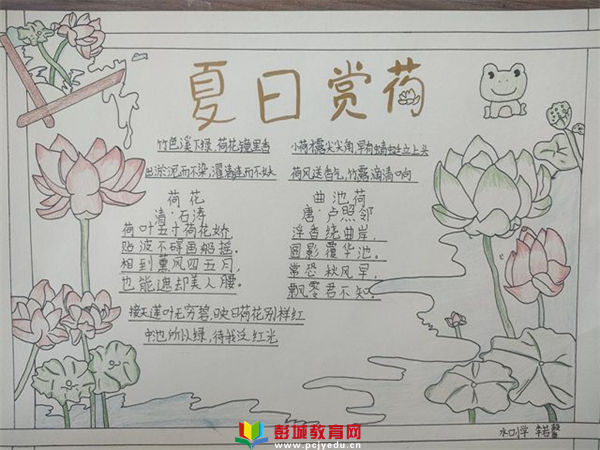 夏日赏荷
竹色溪下绿,荷花镜里香
出淤泥而不染,濯清涟而不妖
小荷才露尖尖角,早有蜻蜓立上头
荷风送香气,竹露滴清响
荷花
清·石涛
荷叶五寸荷花娇,
贴波不碍画船摇.
相到薰风四五月,
也能遮却美人腰.
曲池荷
唐·卢照邻
浮香绕曲岸,
圆影覆华池.
常恐秋风早,
飘零君不知.
接天莲叶无穷碧,映日荷花别样红
池所以绿,待我泛红光
水口小学 李若馨
彭城教育网
www.pcjyedu.cn